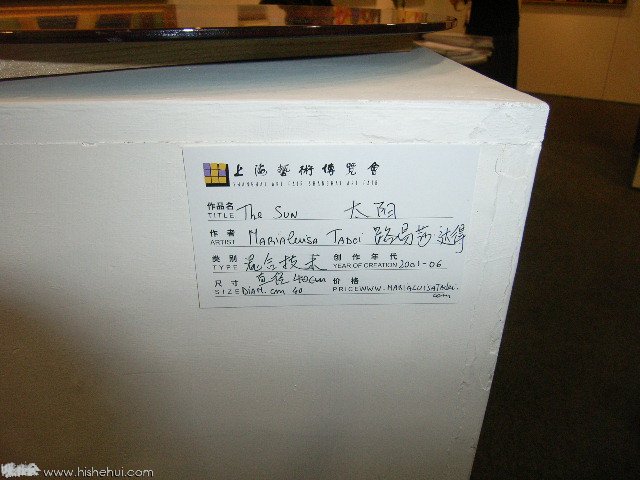 上海藝術博覽會
SHANGHAI ART FAIR SHANGHAI ART FAIR
作品名
TITLE The SUN 太阳
作者
ARTIST MARIALUISA TADEI 路易莎 达得
类别 混合技术 创作年代
TYPE YEAR OF CREATION 2001-06
尺寸 直径 40cm 价格
SIZE DIAM. cm 40 PRICE WWW.MARIALUISATADEI.
com
www.hishehui.com